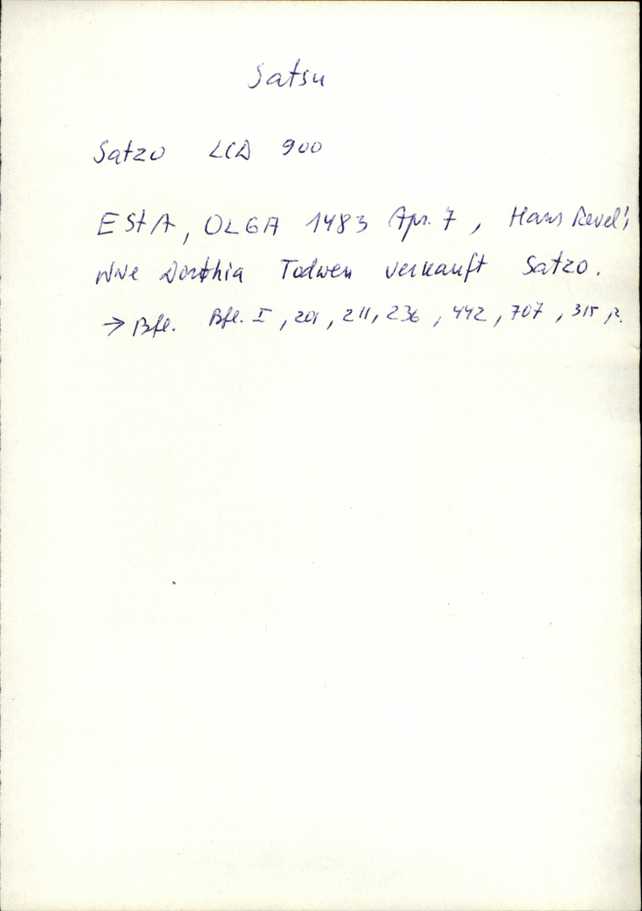 Satsu
Satzo LCD 900
EStA, OLGA 1483 Apr. 7, Hans Revel's
Wwe Dorthia Todwen verkauft Satzo.
→ Bfl. Bfl. I, 201, 211, 236, 442, 707, 315,